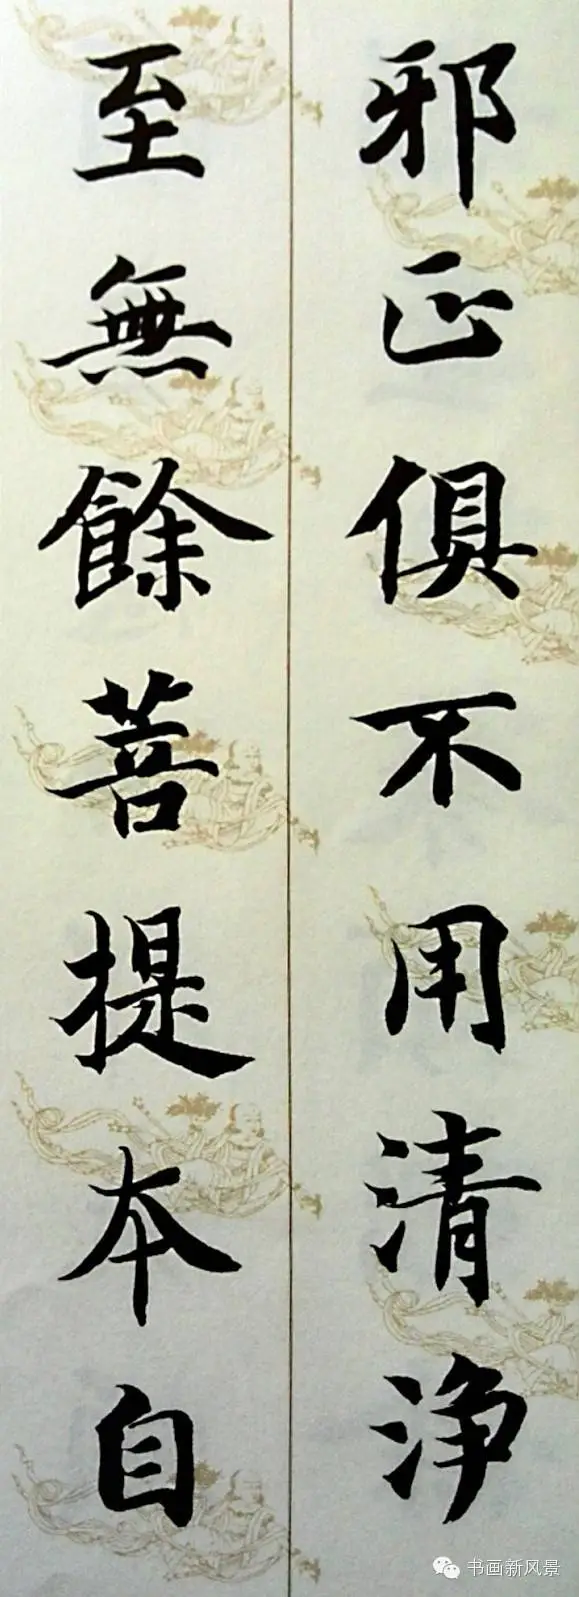 邪正俱不用清净
至無餘菩提本自
书画新风景